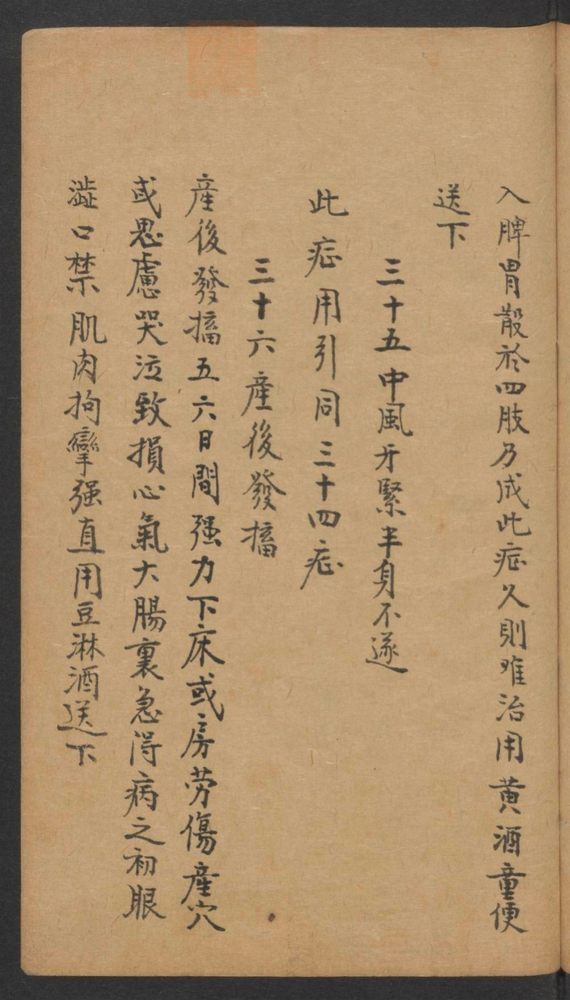 入脾胃散於四肢乃成此症久則难治用黄酒童便
送下
三十五中風牙緊半身不遂
此症用引同三十四症
三十六產後發搐
產後發搐五六日間强力下床或房劳傷產穴
或思慮哭泣致損心氣大腸裏急淂病之初眼
澁口禁肌肉拘攣强直用豆淋酒送下